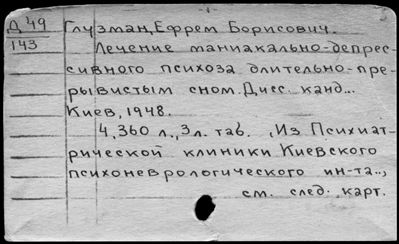 -1-
Д 49
143
Глузман, Ефрем Борисович.
Лечение маниакально-депрес-
сивного психоза длительно-пре-
рывистым сном. Дисс. канд...
Киев, 1948.
4, 360 л., 3л. таб. , Из Психиат-
рической клиники Киевского
психоневрологического ин-та..,
см. след. карт.